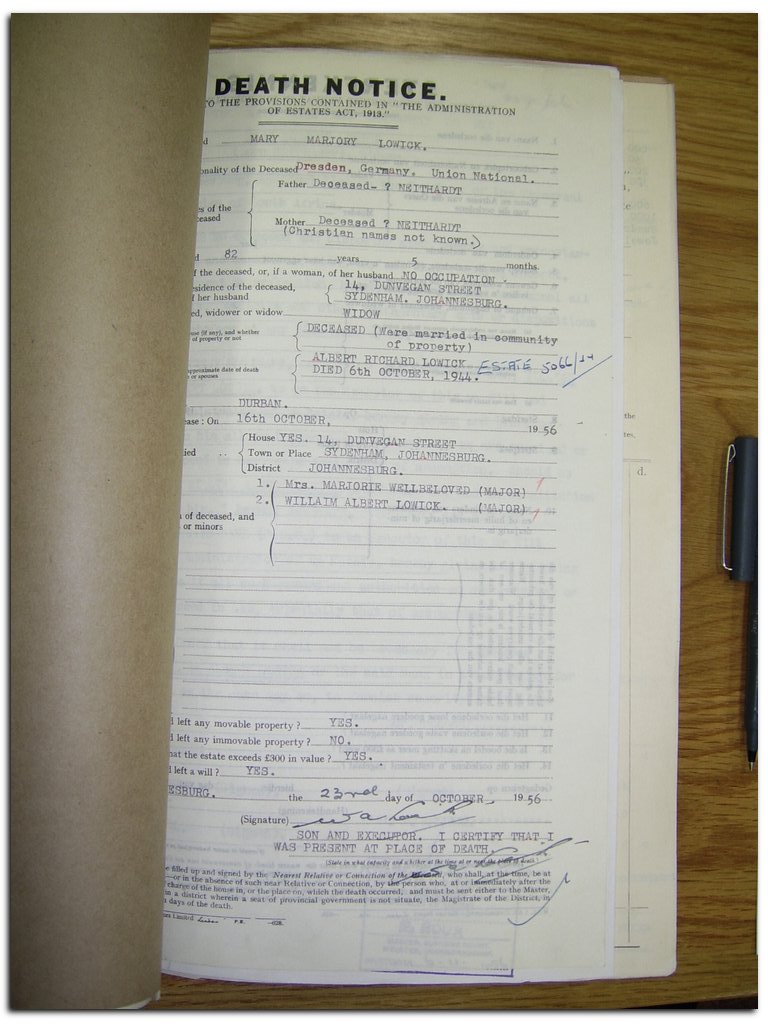 DEATH NOTICE.
TO THE PROVISIONS CONTAINED IN "THE ADMINISTRATION
OF ESTATES ACT, 1913."
d MARY MARJORY LOWICK.
onality of the Deceased Dresden, Germany. Union National.
Father Deceased- ? NEITHARDT
es of the
ceased
Mother Deceased ? NEITHARDT
(Christian names not known.)
d 82 years 5 months.
f the deceased, or, if a woman, of her husband NO OCCUPATION.
esidence of the deceased, 14, DUNVEGAN STREET
f her husband SYDENHAM. JOHANNESBURG.
ed, widower or widow WIDOW
use (if any), and whether DECEASED (Were married in community
of property or not of property)
ALBERT RICHARD LOWICK ESTATE 5066/44
pproximate date of death DIED 6th OCTOBER, 1944.
or spouses
DURBAN.
ease : On 16th OCTOBER, 1956
House YES. 14, DUNVEGAN STREET
ied .. Town or Place SYDENHAM, JOHANNESBURG.
District JOHANNESBURG.
1. Mrs. MARJORIE WELLBELOVED (MAJOR)
2. WILLAIM ALBERT LOWICK. (MAJOR)
n of deceased, and
or minors
d.
l left any movable property ? YES.
l left any immovable property ? NO.
hat the estate exceeds £300 in value ? YES.
l left a will ? YES.
ESBURG. the 23rd day of OCTOBER 1956
(Signature)
SON AND EXECUTOR. I CERTIFY THAT I
WAS PRESENT AT PLACE OF DEATH.
(State in what capacity and whether at the time at or near the place of death)
e filled up and signed by the Nearest Relative or Connection of the deceased, who shall, at the time, be at
—or in the absence of such near Relative or Connection, by the person who, at or immediately after the
charge of the house in, or the place on, which the death occurred, and must be sent either to the Master,
n a district wherein a seat of provincial government is not situate, the Magistrate of the District, in
days of the death.